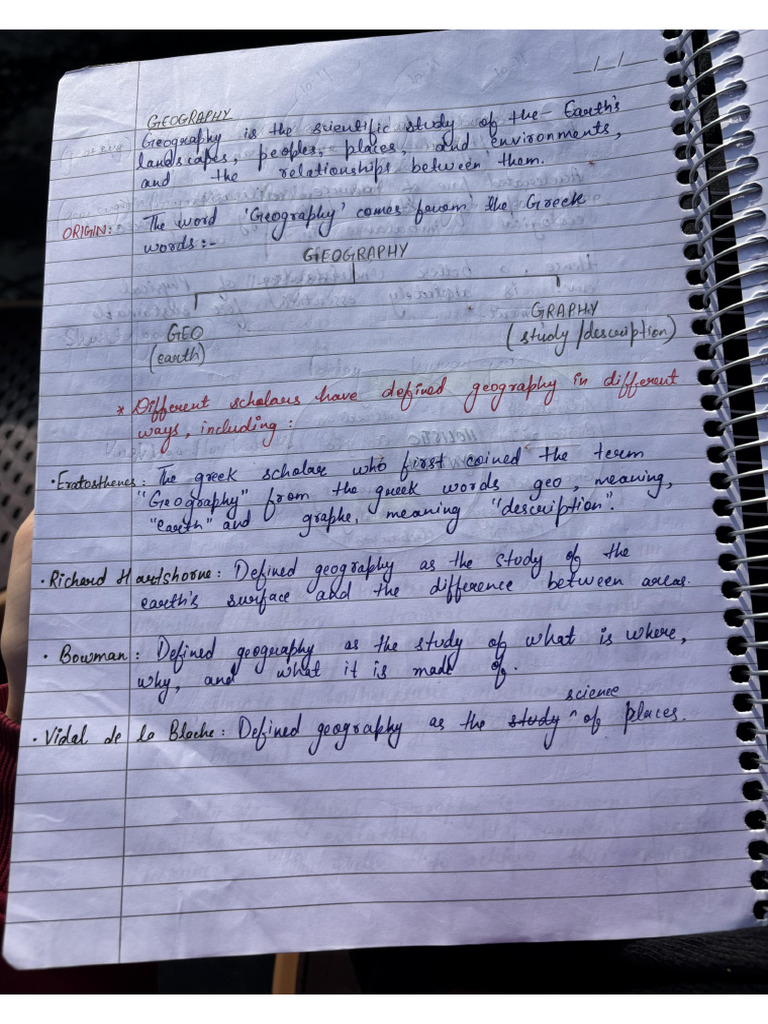 __/__/__
GEOGRAPHY
Geography is the scientific study of the Earth's
landscapes, peoples, places, and environments,
and the relationships between them.
ORIGIN: The word 'Geography' comes from the Greek
words:-
GEOGRAPHY
GEO GRAPHY
(earth) (study/description)
* Different scholars have defined geography in different
ways, including:
• Eratosthenes: The greek scholar who first coined the term
"Geography" from the greek words geo, meaning,
"earth" and graphe, meaning "description".
• Richard Hartshorne: Defined geography as the study of the
earth's surface and the difference between areas.
• Bowman: Defined geography as the study of what is where,
why, and what it is made of.
science
• Vidal de la Blache: Defined geography as the study ^ of places.